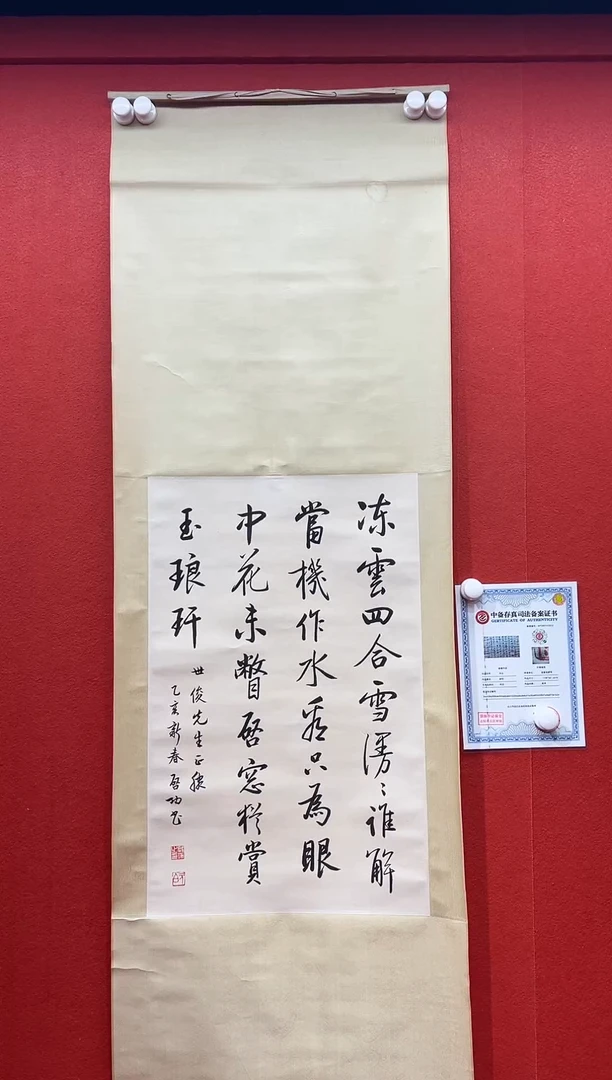 凍雲四合雪漫々誰解
當機作水看只為眼
中花未瞥啓窓猶賞
玉琅玕
世俊先生正腕
乙亥新春啓功書
中备存真司法备案证书
CERTIFICATE OF AUTHENTICITY